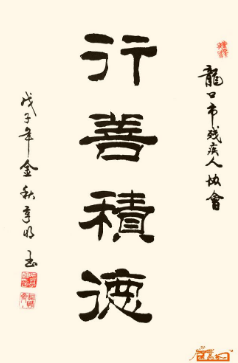 龍口市残疾人协會
行善積德
戊子年金秋李明玉